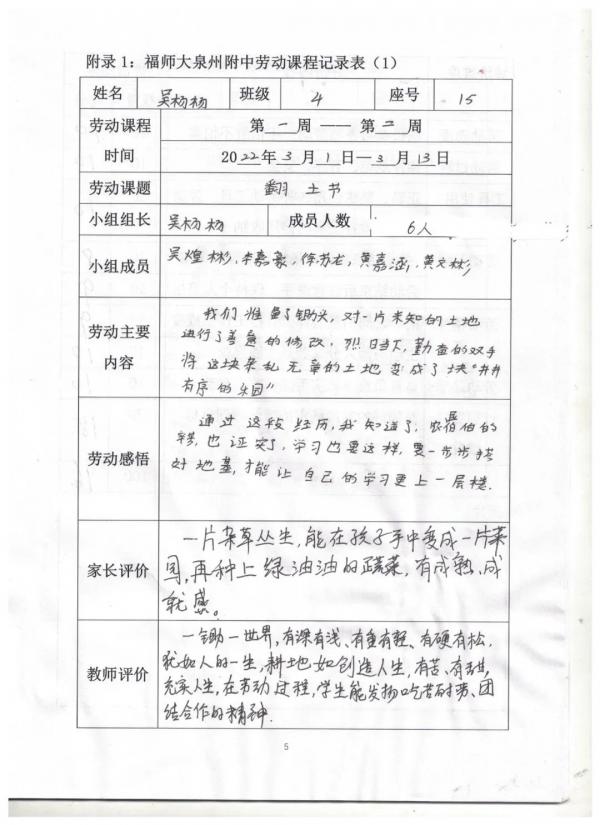 附录1：福师大泉州附中劳动课程记录表（1）
姓名 吴杨杨 班级 4 座号 15
劳动课程时间 第一周——第二周
2022年3月1日—3月13日
劳动课题 翻土书
小组组长 吴杨杨 成员人数 6人
小组成员 吴煌彬，李嘉豪，徐苏龙，黄嘉涵，黄文彬
劳动主要内容 我们准备了锄头，对一片未知的土地
进行了善意的修改，烈日当下，勤奋的双手
将这块杂乱无章的土地变成了块“井井
有序的乐园”
劳动感悟 通过这段经历，我知道了，农民伯伯的
辛苦，也证实了，学习也要这样，要一步步搭
好地基，才能让自己的学习更上一层楼.
家长评价 一片杂草丛生，能在孩子手中变成一片菜
园，再种上绿油油的蔬菜，有成熟、成
就感。
教师评价 一锄一世界，有深有浅、有重有轻、有硬有松，
犹如人的一生，耕地如创造人生，有苦、有甜，
充实人生，在劳动过程，学生能发扬吃苦耐劳、团
结合作的精神.
5